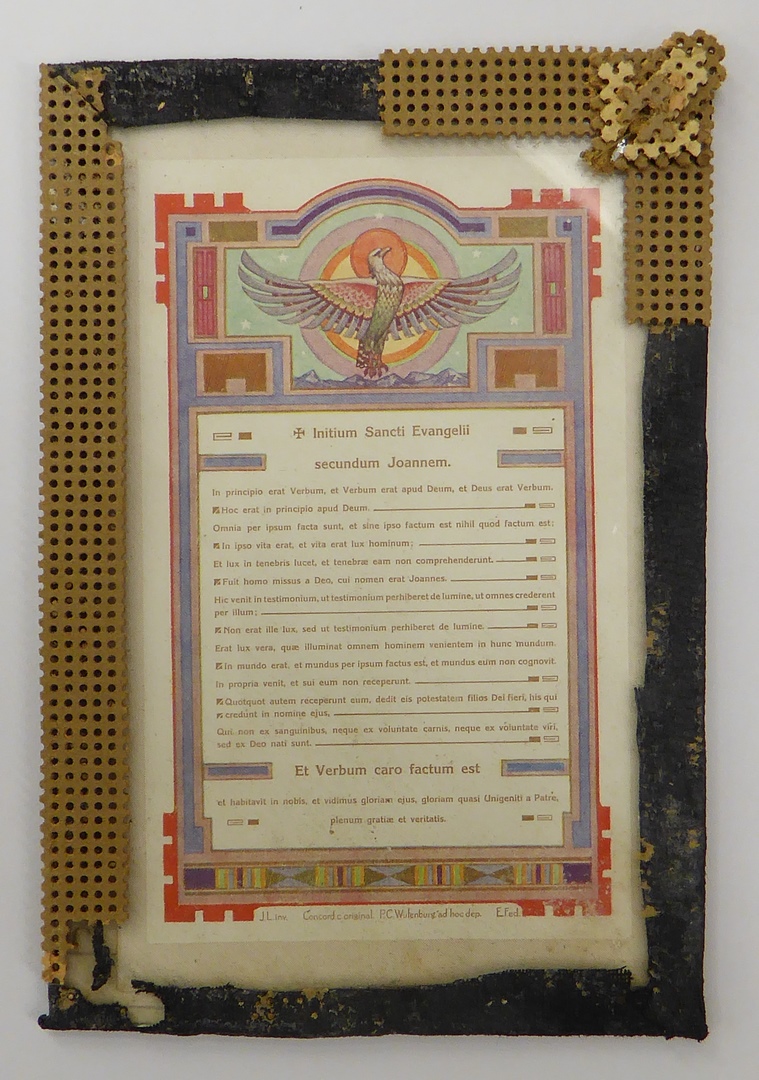 ✠ Initium Sancti Evangelii
secundum Joannem.
In principio erat Verbum, et Verbum erat apud Deum, et Deus erat Verbum.
Hoc erat in principio apud Deum.
Omnia per ipsum facta sunt, et sine ipso factum est nihil quod factum est:
In ipso vita erat, et vita erat lux hominum;
Et lux in tenebris lucet, et tenebræ eam non comprehenderunt.
Fuit homo missus a Deo, cui nomen erat Joannes.
Hic venit in testimonium, ut testimonium perhiberet de lumine, ut omnes crederent
per illum;
Non erat ille lux, sed ut testimonium perhiberet de lumine.
Erat lux vera, quæ illuminat omnem hominem venientem in hunc mundum.
In mundo erat, et mundus per ipsum factus est, et mundus eum non cognovit.
In propria venit, et sui eum non receperunt.
Quotquot autem receperunt eum, dedit eis potestatem filios Dei fieri, his qui
credunt in nomine ejus,
Qui non ex sanguinibus, neque ex voluntate carnis, neque ex voluntate viri,
sed ex Deo nati sunt.
Et Verbum caro factum est
et habitavit in nobis, et vidimus gloriam ejus, gloriam quasi Unigeniti a Patre,
plenum gratiæ et veritatis.
J.L. inv. Concord c. original. P.C. ad hoc dep. E.Fed.